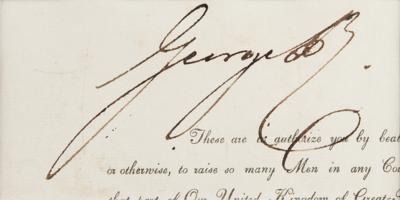 George R.
These are to authorize you by beat
or otherwise, to raise so many Men in any Cou
that part of Our United Kingdom of Great